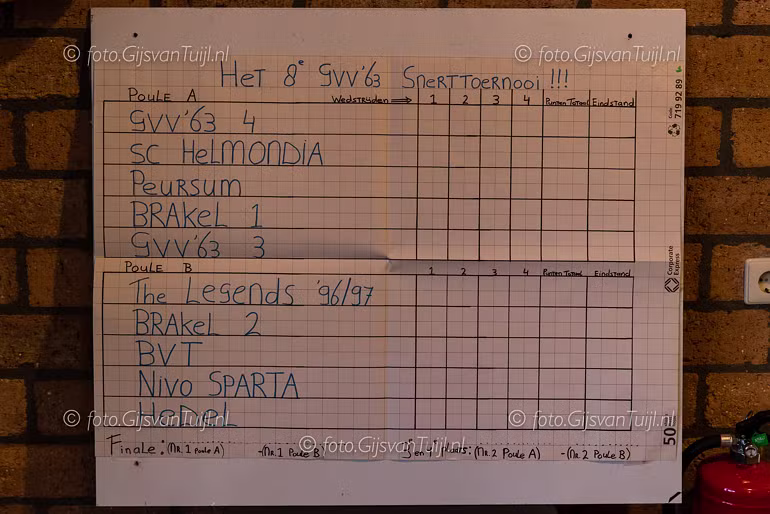 © foto.GijsvanTuijl.nl © foto.GijsvanTuijl.nl
Het 8e GVV'63 Snerttoernooi !!!
Poule A Wedstrijden ⇒ 1 2 3 4 Punten Totaal Eindstand
GVV'63 4
SC Helmondia
Peursum
Brakel 1
GVV'63 3
Poule B 1 2 3 4 Punten Totaal Eindstand
The Legends '96/97
Brakel 2
BVT
Nivo Sparta
Hedel
© foto.GijsvanTuijl.nl © foto.GijsvanTuijl.nl
Finale: (Nr. 1 Poule A) - (Nr. 1 Poule B) 3e en 4e plaats: (Nr. 2 Poule A) - (Nr. 2 Poule B)
© foto.GijsvanTuijl.nl
Code
719 92 89
Corporate
Express
50